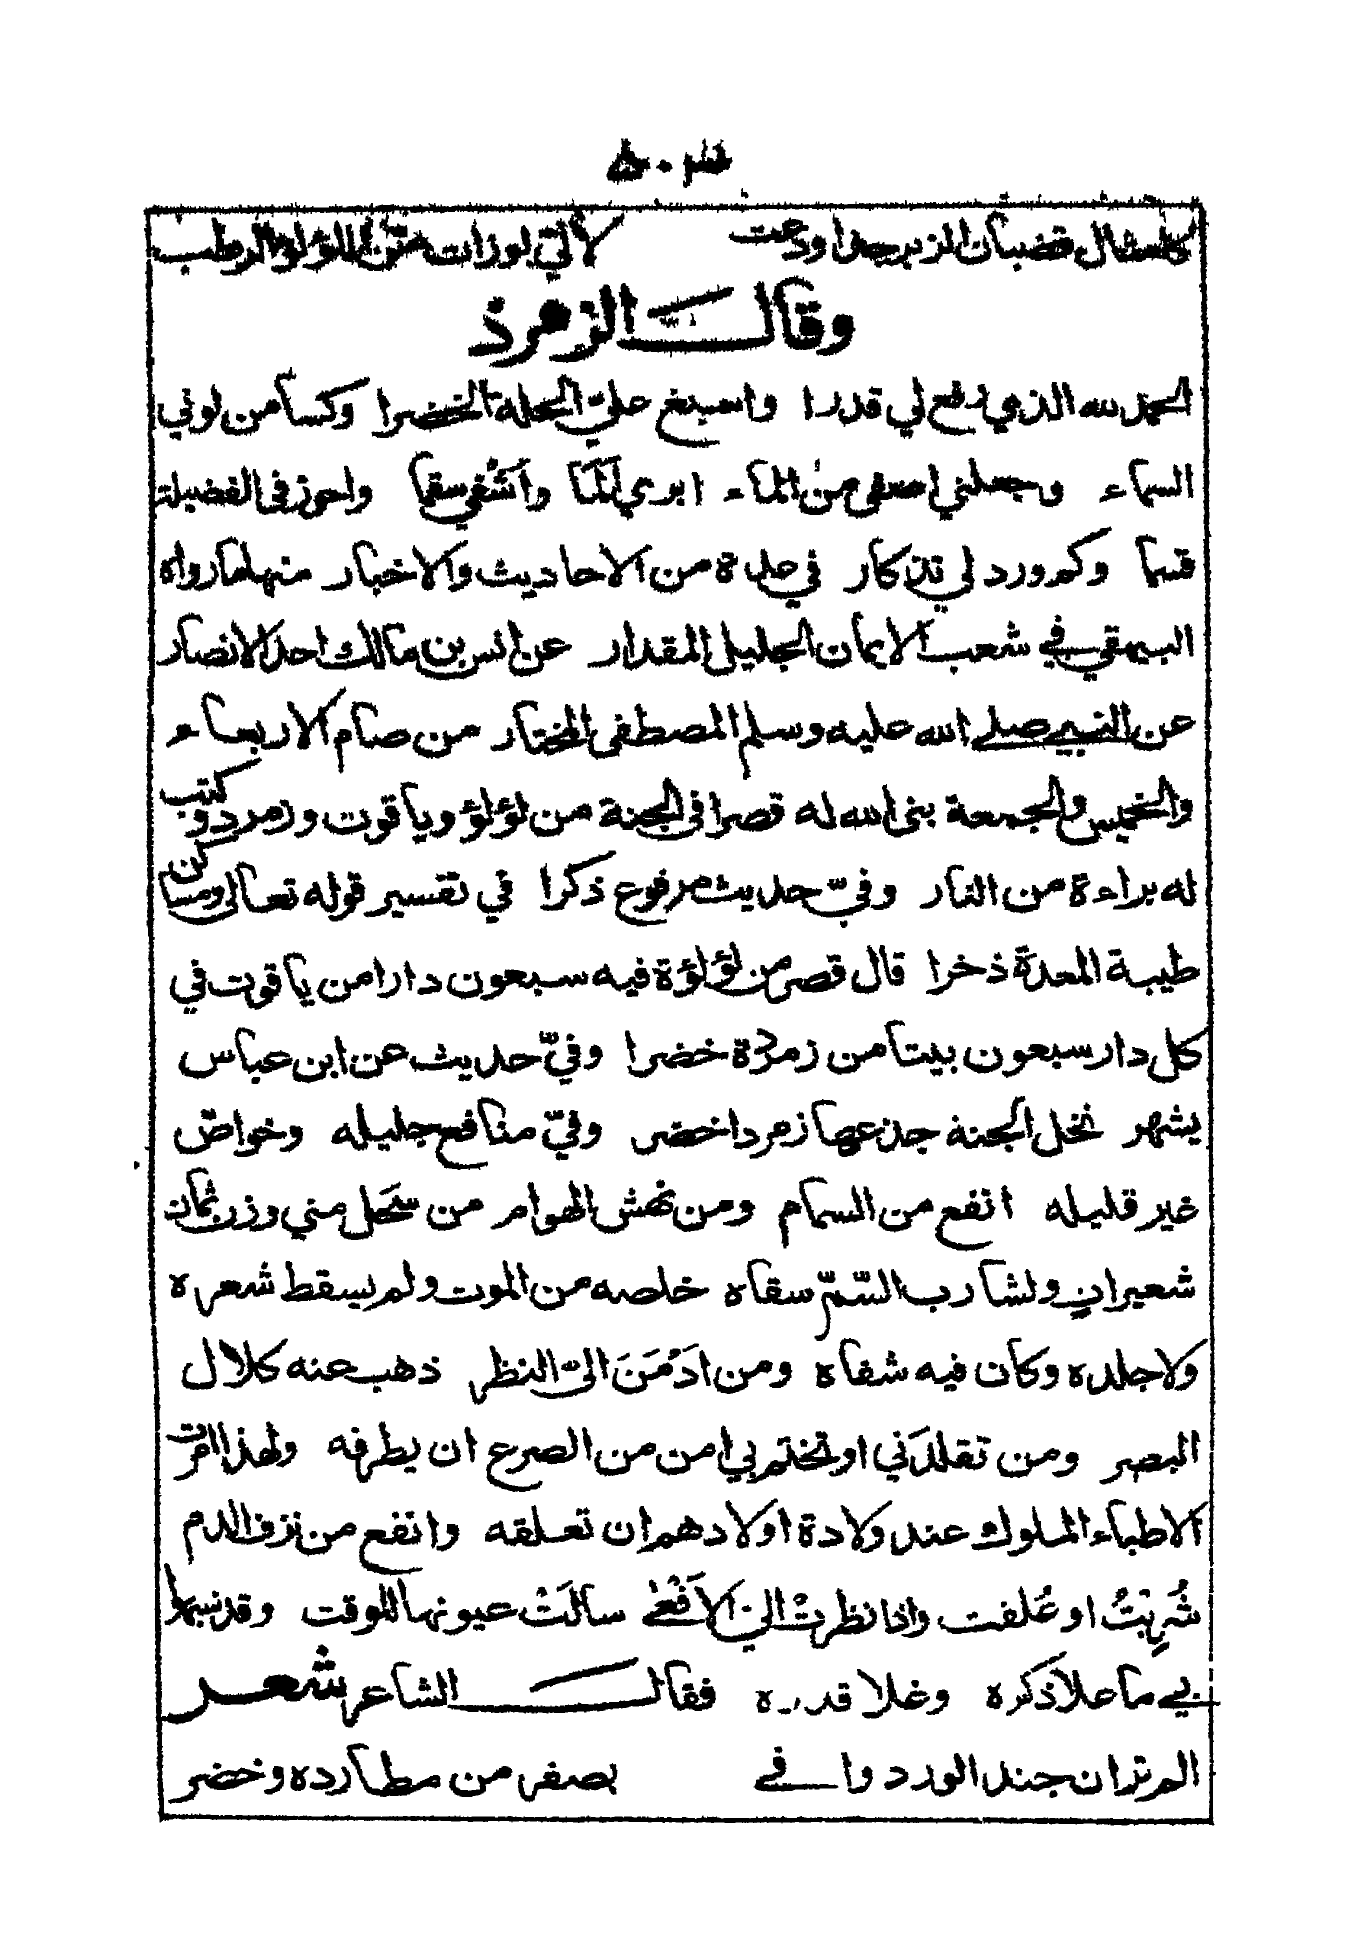 كامثال قضبان الزبرجد اودعت لآلئ لوزات من اللؤلؤ الرطب
وقالـــت الزمرذ
الحمد لله الذي رفع لي قدرا واسبغ عليّ الحلة الخضرا وكسا من لوني
السماء وجعلني اصفى من الماء ابري اَلَمًا واَشْفي سقما واحوز في الفضيلة
قسما وكم ورد لي تذكار في عدة من الاحاديث والاخبار منها ما رواه
البيهقي في شعب الايمان الجليل المقدار عن انس بن مالك احد الانصار
عن النبي صلى الله عليه وسلم المصطفى المختار من صام الاربعاء
والخميس والجمعة بنى الله له قصرا في الجنة من لؤلؤ وياقوت وزمرد وكتب
له براءة من النار وفيّ حديث مرفوع ذكرا في تفسير قوله تعالى ومساكن
طيبة المعدة ذخرا قال قصر من لؤلؤة فيه سبعون دارا من ياقوت في
كل دار سبعون بيتا من زمردة خضرا وفيّ حديث عن ابن عباس
يشهر نخل الجنة جذعها زمرد اخضر وفيّ منافع جليله وخواصّ
غير قليله انفع من السمام ومن نهش الهوام من سحل مني وزن ثمان
شعيرات ولشارب السّمّ سقاه خلصه من الموت ولم يسقط شعره
ولا جلده وكان فيه شفاه ومن ادْمَنَ اليّ النظر ذهب عنه كلال
البصر ومن تقلدَني او تختم بي امن من الصرع ان يطرفه ولهذا امرت
الاطباء الملوك عند ولادة اولادهم ان تعلقه وانفع من نزف الدم
شُرِبْتُ او عُلقت واذا نظرتْ اليّ الاَفْعٰى سالَتْ عيونها للوقت وقد نسبها
بي ما علا ذكره وغلا قدره فقالـــت الشاعر شعـر
الم تر ان جند الورد وافى بصفر من مطارده وخضر